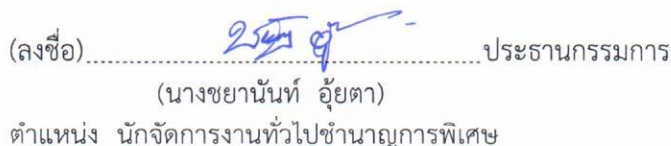 (ลงชื่อ)..........ประธานกรรมการ
(นางชยานันท์ อุ้ยตา)
ตำแหน่ง นักจัดการงานทั่วไปชำนาญการพิเศษ